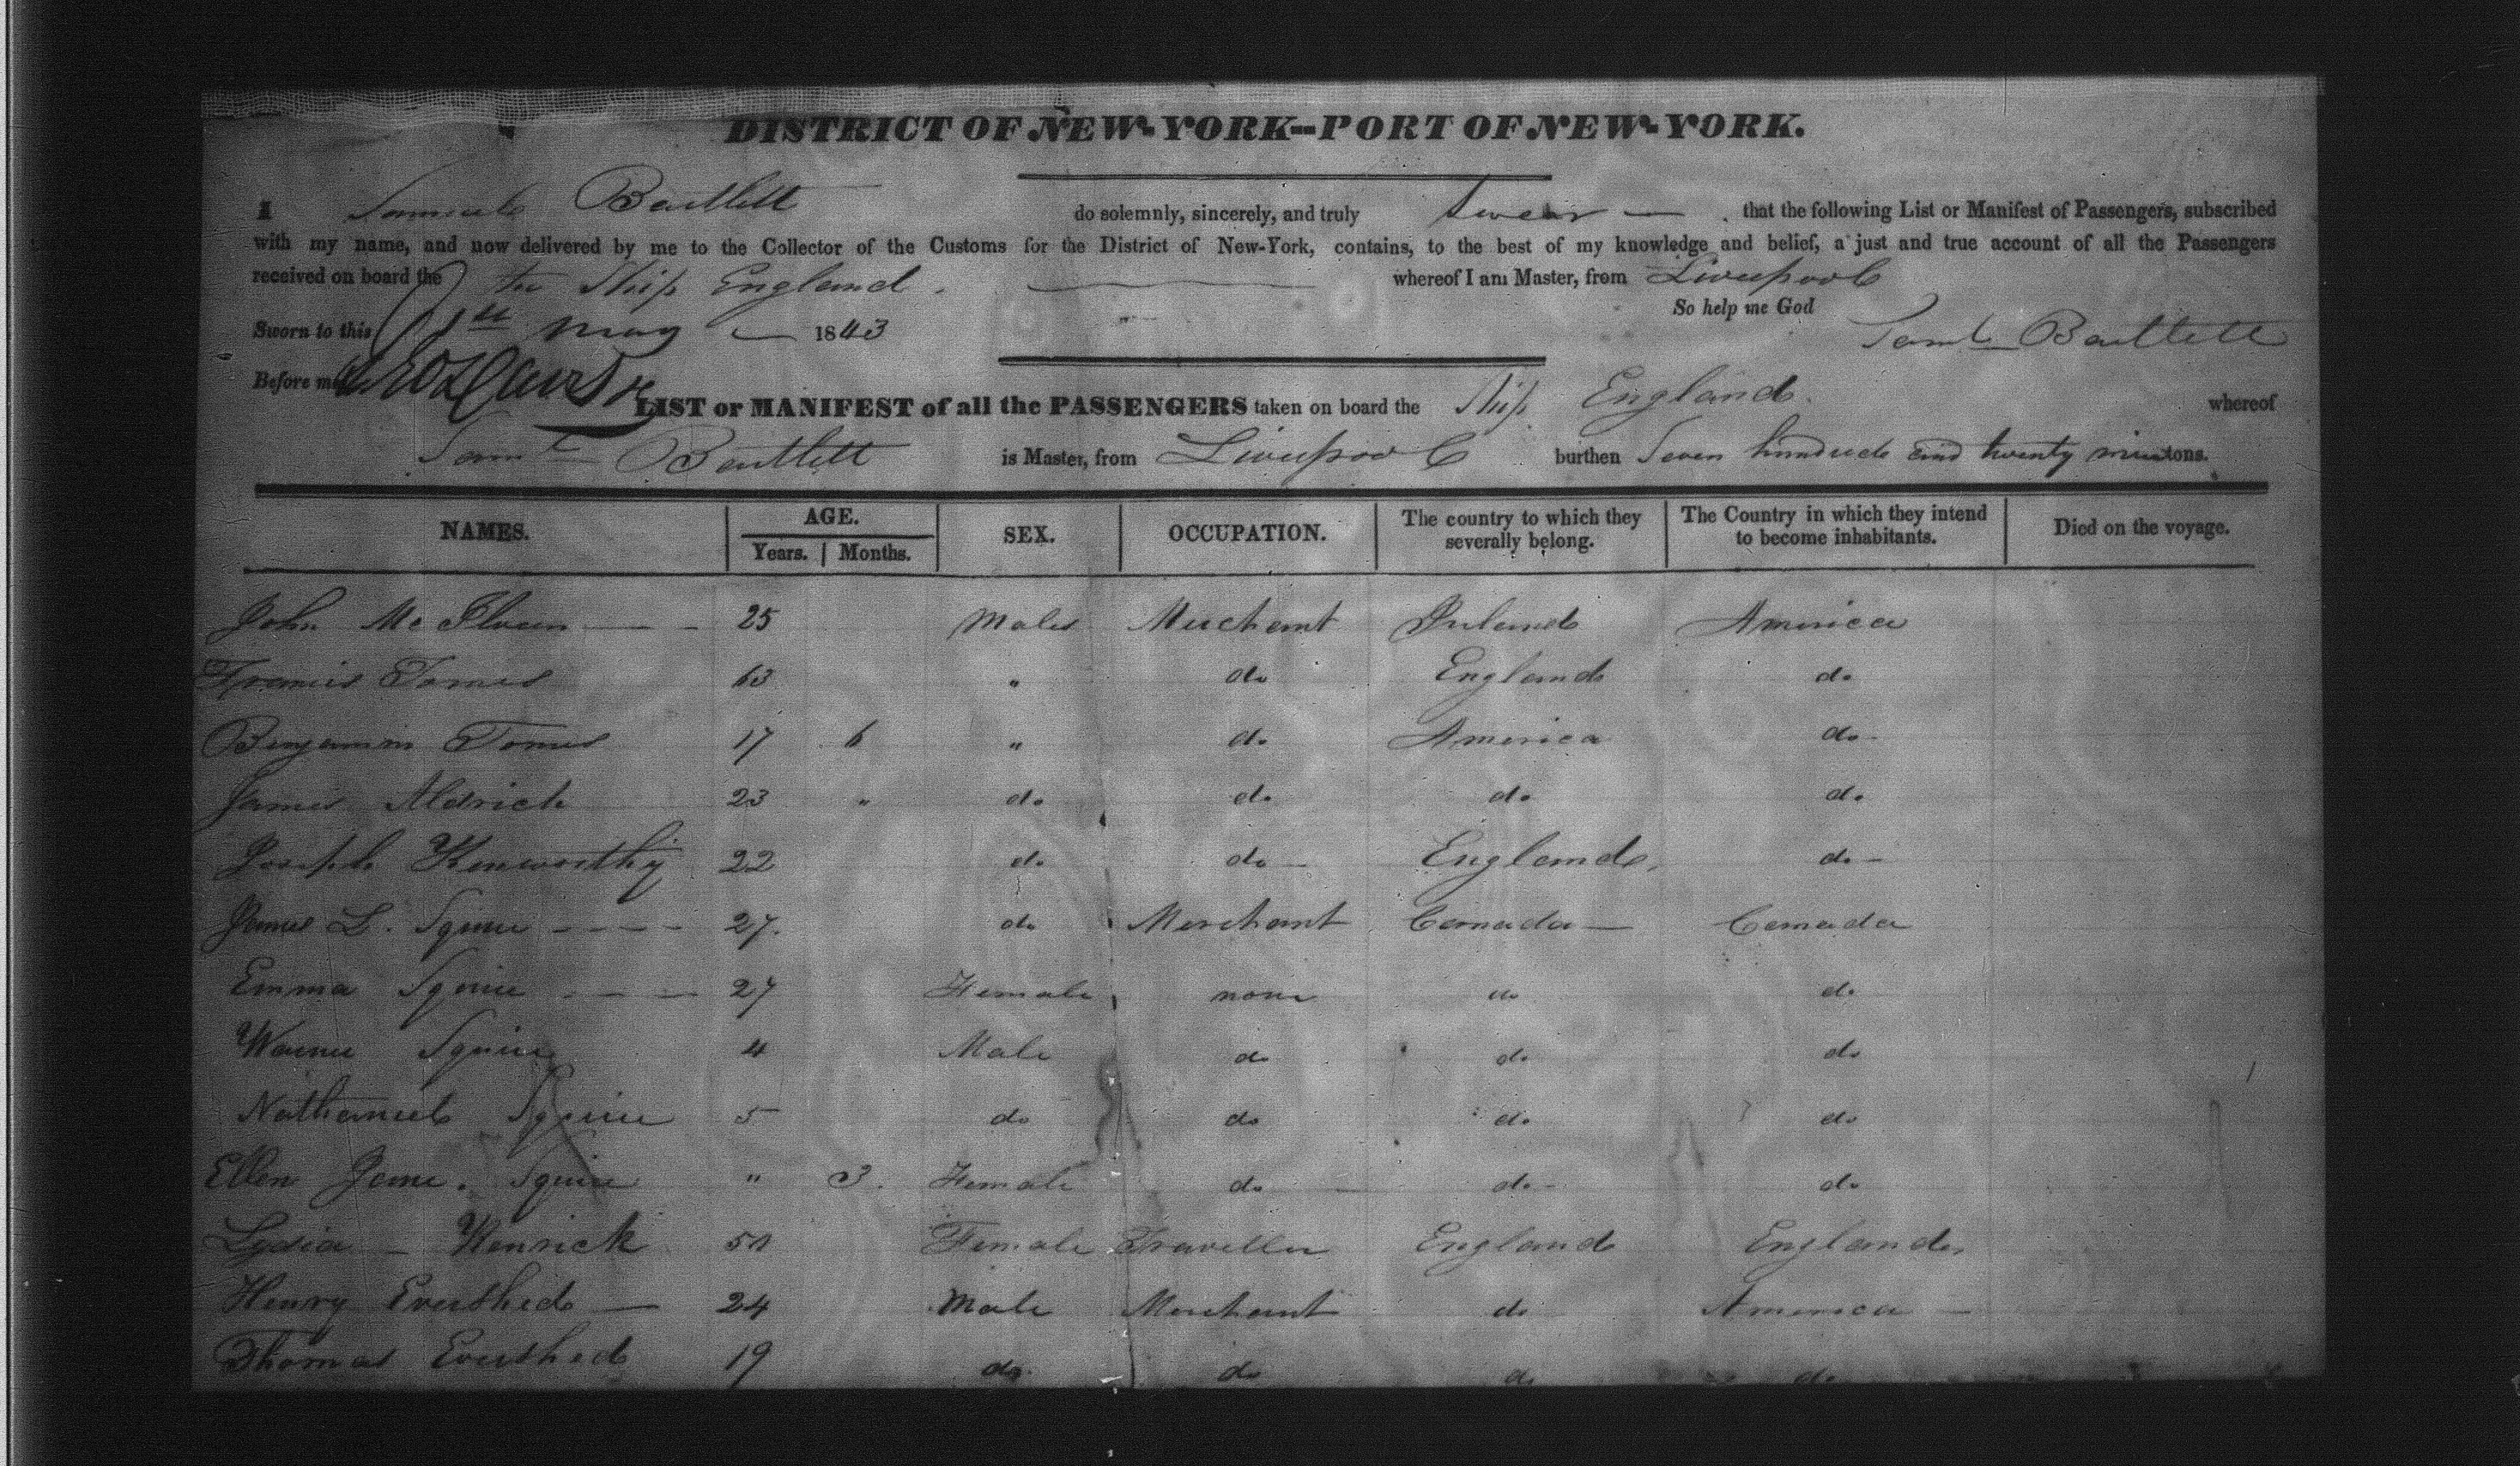 DISTRICT OF NEW-YORK--PORT OF NEW-YORK.
I Samuel Bartlett do solemnly, sincerely, and truly Swear — that the following List or Manifest of Passengers, subscribed
with my name, and now delivered by me to the Collector of the Customs for the District of New-York, contains, to the best of my knowledge and belief, a just and true account of all the Passengers
received on board the the Ship England. whereof I am Master, from Liverpool
So help me God
Sworn to this May — 1843 Saml Bartlett
Before me
LIST or MANIFEST of all the PASSENGERS taken on board the Ship England. whereof
Saml Bartlett is Master, from Liverpool burthen Seven hundred and twenty nine tons.
NAMES. AGE. SEX. OCCUPATION. The country to which they severally belong. The Country in which they intend to become inhabitants. Died on the voyage.
Years. Months.
John 25 Male Merchant Ireland America
Francis Tomes 63 " do England do
Benjamin Tomes 17 6 " do America do
James Aldrich 23 " do do do do
Joseph Kenworthy 22 do do — England. do —
James L. Squire ---- 27. do Merchant Canada — Canada
Emma Squire --- 27 Female none do do
Squire 4 Male do do do
Nathaniel Squire 5 do do do do
Ellen Jane. Squire " 3. Female do do do
Lydia — 51 Female Traveller England England
Henry Evershed — 24 Male Merchant do America —
Thomas Evershed 19 do. do do do